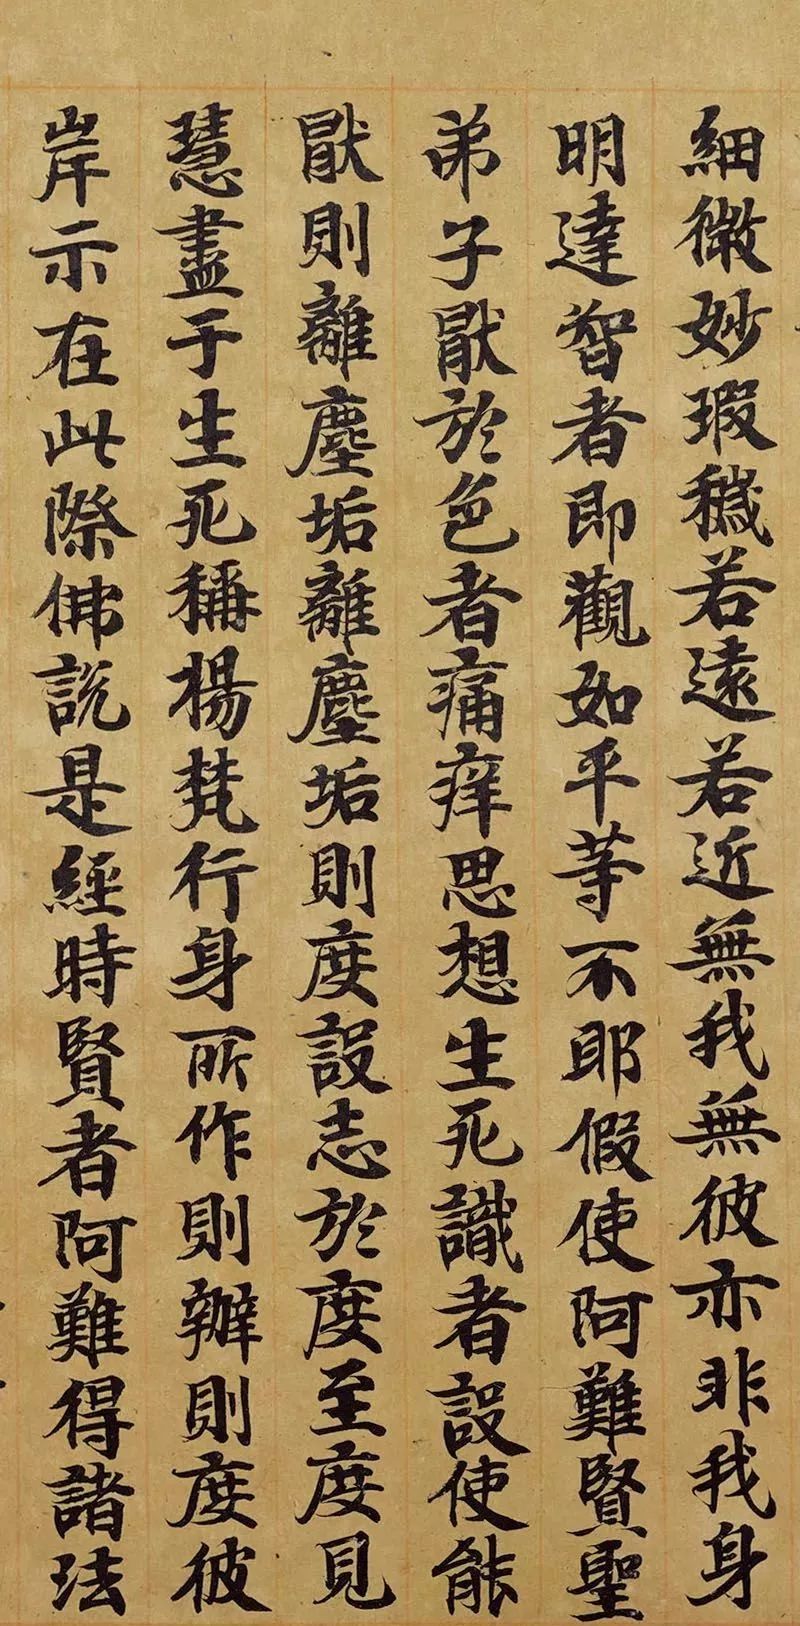 細微妙瑕穢若遠若近無我無彼亦非我身
明達智者即觀如平等不耶假使阿難賢聖
弟子猒於色者痛痒思想生死識者設使能
猒則離塵垢離塵垢則度設志於度至度見
慧盡于生死稱楊梵行身所作則辦則度彼
岸示在此際佛說是經時賢者阿難得諸法